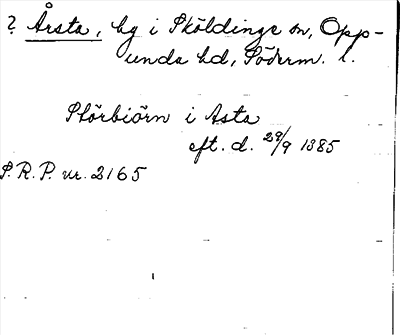 ? Årsta, by i Sköldinge sn, Opp-
unda hd, Söderm. l.
Störbiörn i Asta
eft. d. 29/9 1385
S.R.P. nr. 2165